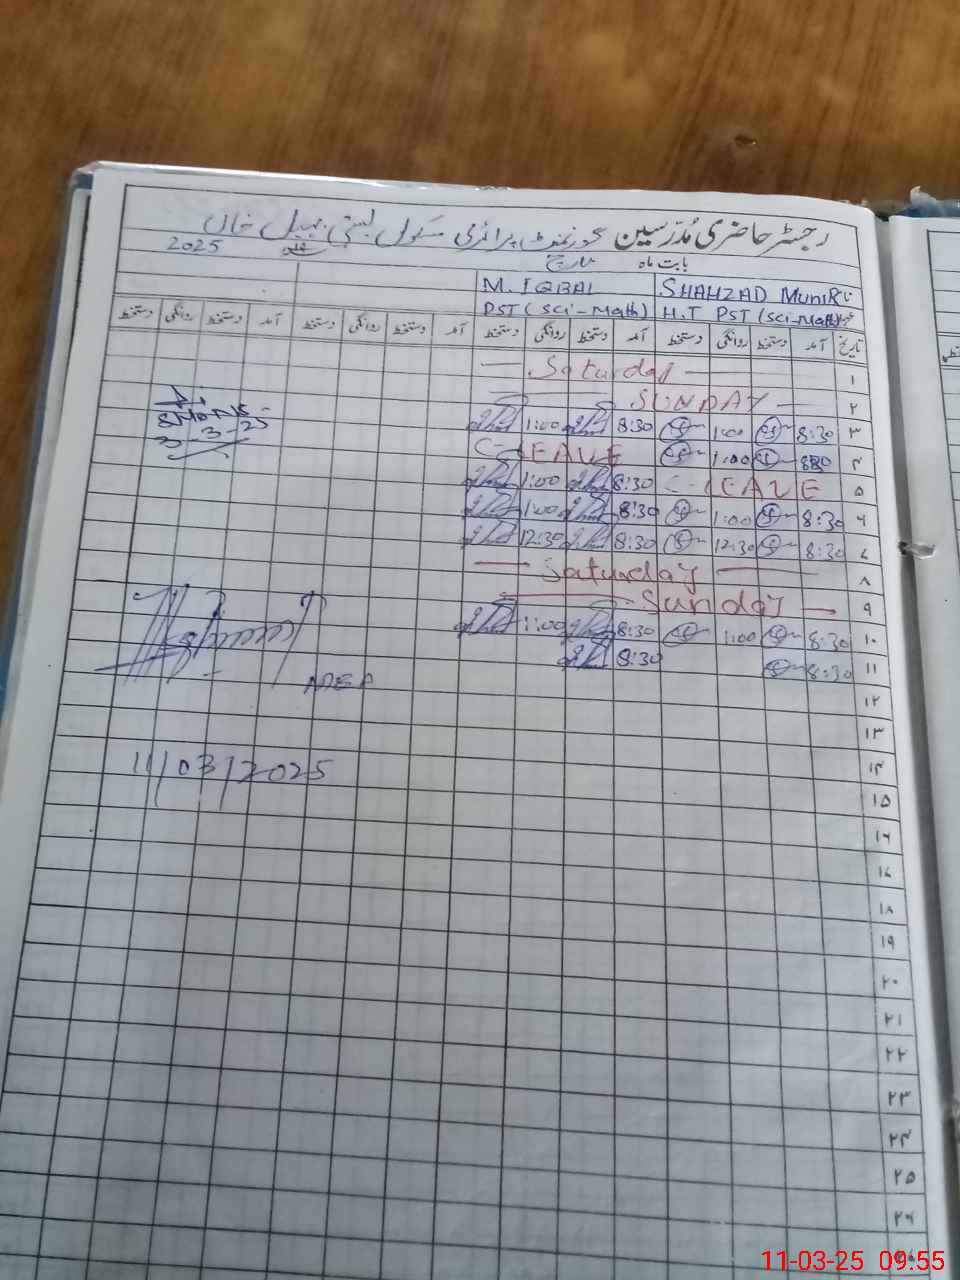 رجسٹر حاضری مُدرّسین گورنمنٹ پرائمری سکول بستی سہیل خاں
بابت ماہ مارچ 2025
M. IQBAL SHAHZAD MuniR
PST (Sci-Math) H.T PST (Sci-Math)
تاریخ آمد دستخط روانگی دستخط آمد دستخط روانگی دستخط آمد دستخط روانگی دستخط آمد دستخط روانگی دستخط
۱ Saturday
۲ SUNDAY
۳ 8:30 1:00 8:30 1:00
۴ 8:30 1:00 C-LEAVE
۵ C-LEAVE 8:30 1:00
۶ 8:30 1:00 8:30 1:00
۷ 8:30 12:30 8:30 12:30
۸ Saturday
۹ Sunday
۱۰ 8:30 1:00 8:30 1:00
۱۱ 8:30 8:30
۱۲
۱۳
۱۴
۱۵
۱۶
۱۷
۱۸
۱۹
۲۰
۲۱
۲۲
۲۳
۲۴
۲۵
۲۶
3-3-25
11/03/2025
11-03-25 09:55